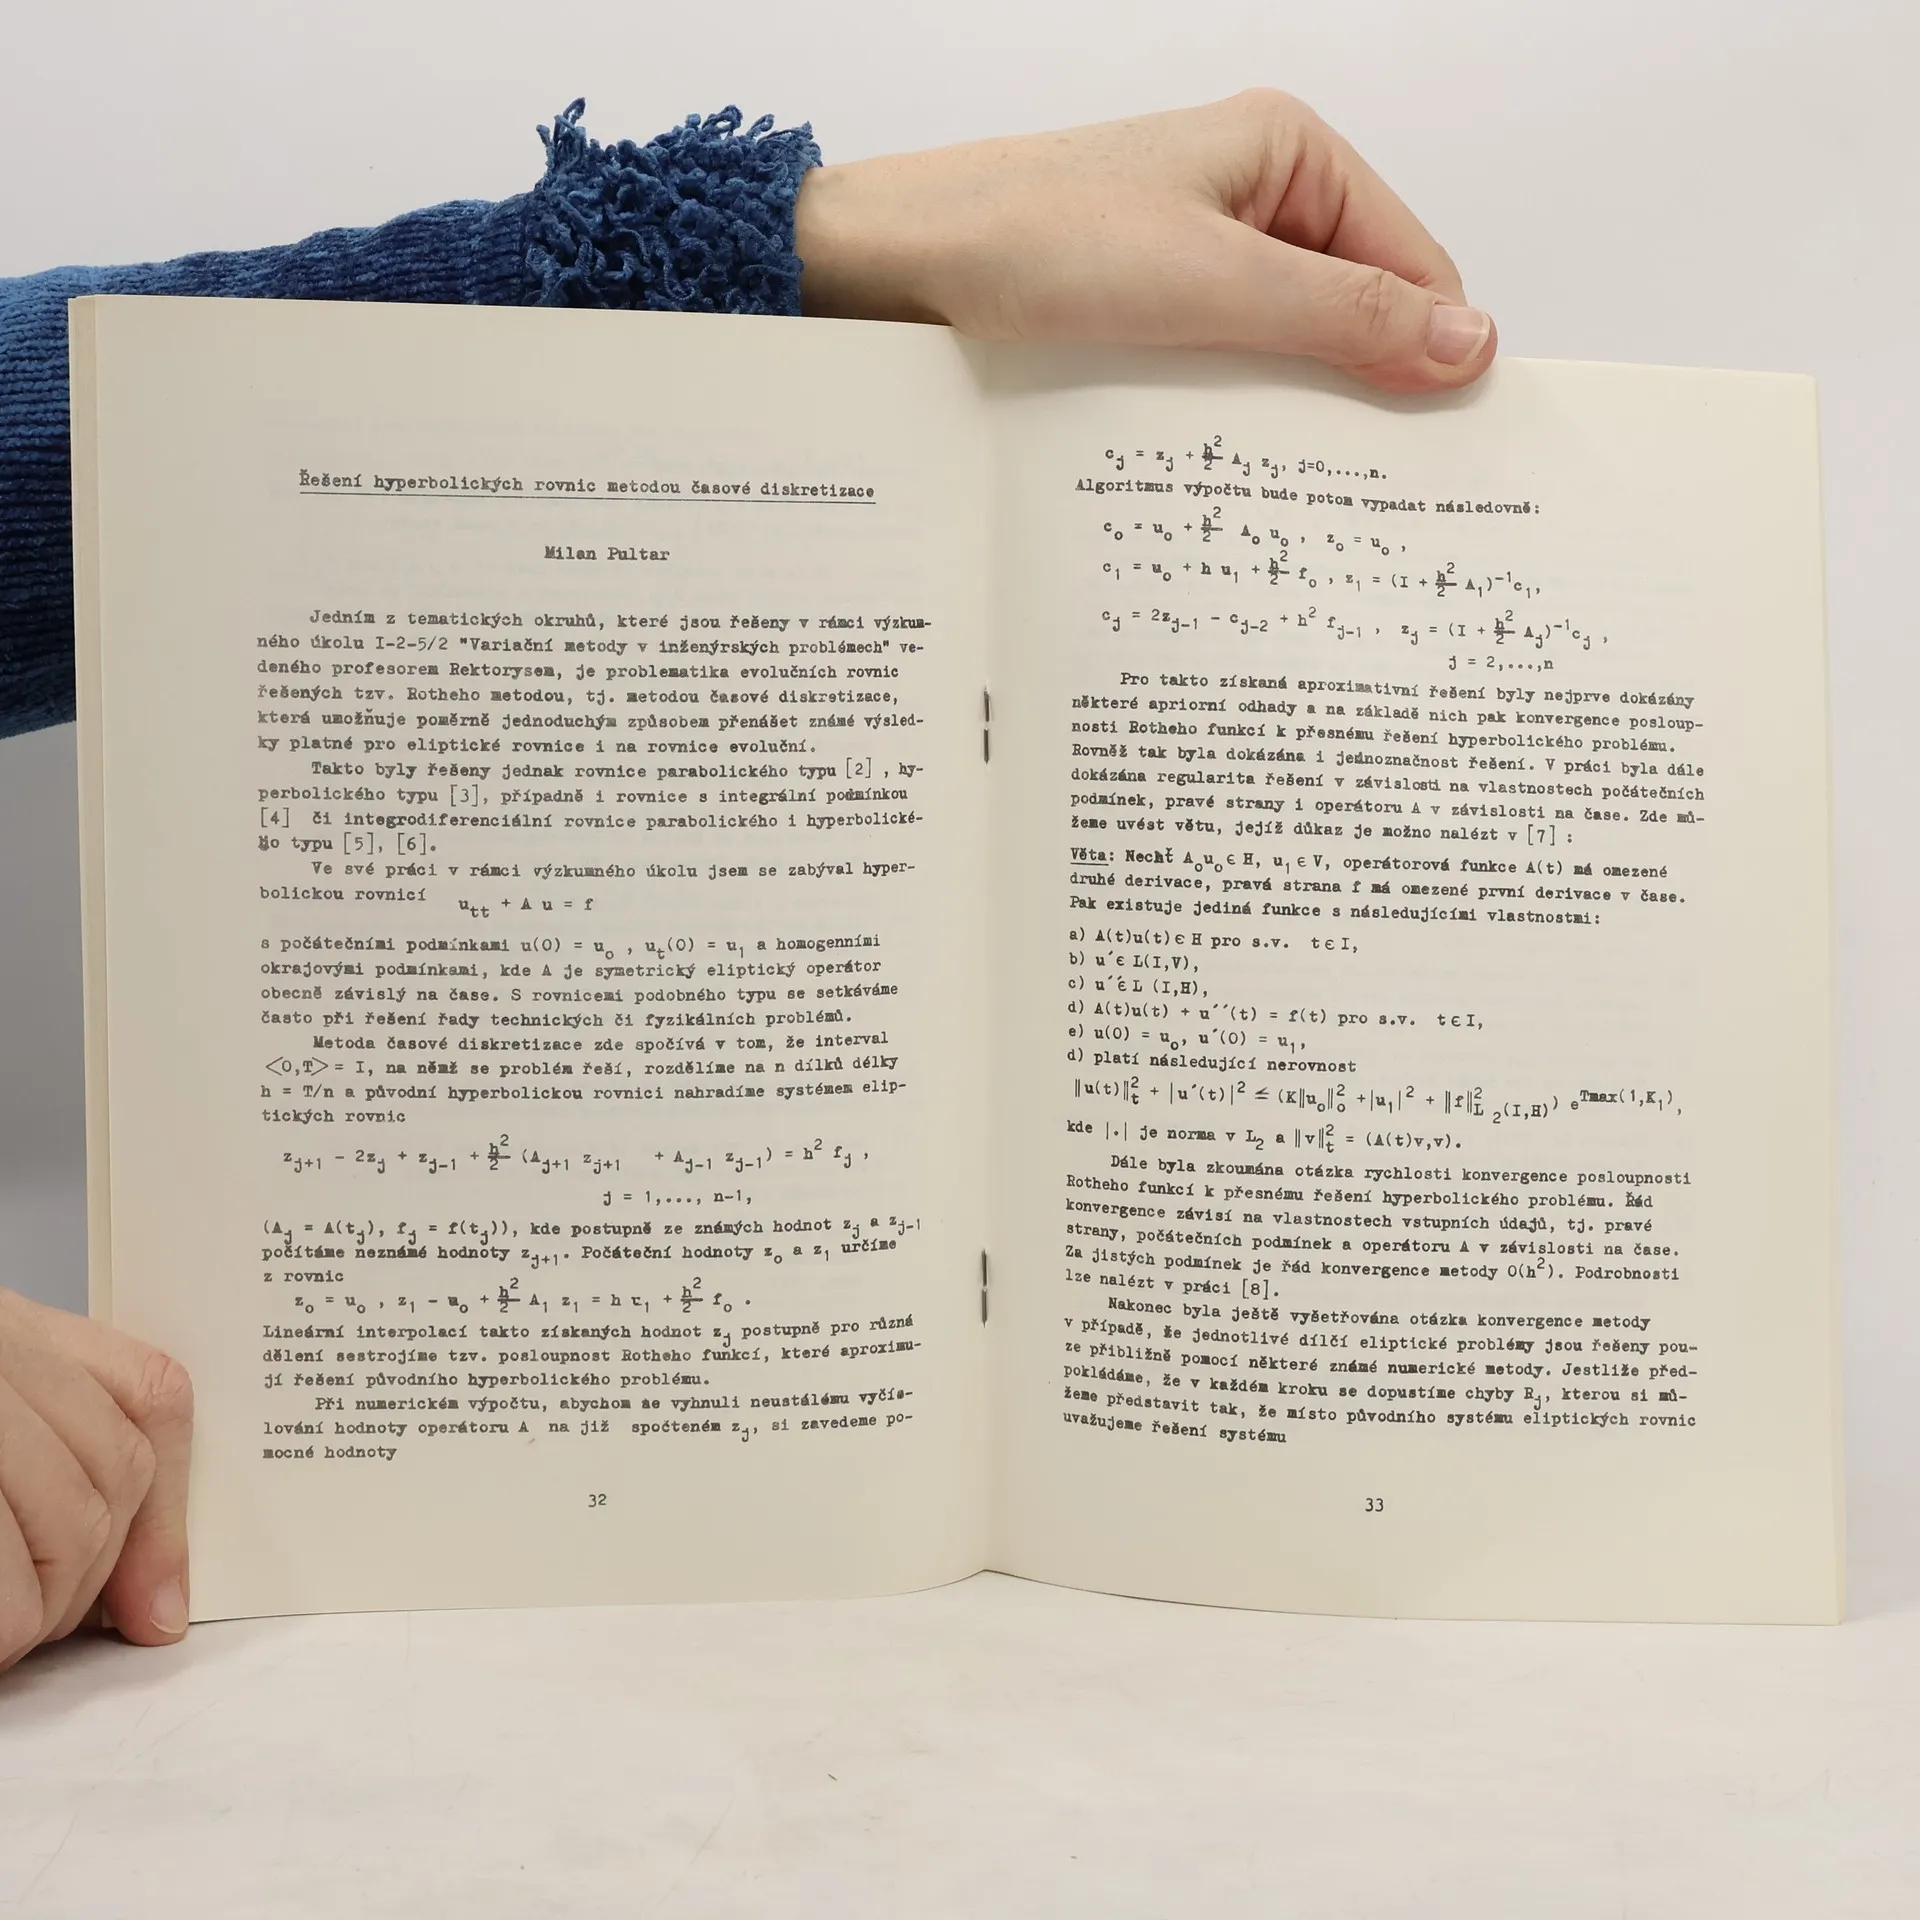 Řešení hyperbolických rovnic metodou časové diskretizace
Milan Pultar
Jedním z tematických okruhů, které jsou řešeny v rámci výzkum-
ného úkolu I-2-5/2 "Variační metody v inženýrských problémech" ve-
deného profesorem Rektorysem, je problematika evolučních rovnic
řešených tzv. Rotheho metodou, tj. metodou časové diskretizace,
která umožňuje poměrně jednoduchým způsobem přenášet známé výsled-
ky platné pro eliptické rovnice i na rovnice evoluční.
Takto byly řešeny jednak rovnice parabolického typu [2] , hy-
perbolického typu [3], případně i rovnice s integrální podmínkou
[4] či integrodiferenciální rovnice parabolického i hyperbolické-
ho typu [5], [6].
Ve své práci v rámci výzkumného úkolu jsem se zabýval hyper-
bolickou rovnicí
u_tt + A u = f
s počátečními podmínkami u(0) = u_o , u_t(0) = u_1 a homogenními
okrajovými podmínkami, kde A je symetrický eliptický operátor
obecně závislý na čase. S rovnicemi podobného typu se setkáváme
často při řešení řady technických či fyzikálních problémů.
Metoda časové diskretizace zde spočívá v tom, že interval
<0,T> = I, na němž se problém řeší, rozdělíme na n dílků délky
h = T/n a původní hyperbolickou rovnici nahradíme systémem elip-
tických rovnic
z_{j+1} - 2z_j + z_{j-1} + h²/2 (A_{j+1} z_{j+1} + A_{j-1} z_{j-1}) = h² f_j ,
j = 1,..., n-1,
(A_j = A(t_j), f_j = f(t_j)), kde postupně ze známých hodnot z_j a z_{j-1}
počítáme neznámé hodnoty z_{j+1}. Počáteční hodnoty z_o a z_1 určíme
z rovnic
z_o = u_o , z_1 - u_o + h²/2 A_1 z_1 = h u_1 + h²/2 f_o .
Lineární interpolací takto získaných hodnot z_j postupně pro různá
dělení sestrojíme tzv. posloupnost Rotheho funkcí, které aproximu-
jí řešení původního hyperbolického problému.
Při numerickém výpočtu, abychom se vyhnuli neustálému vyčís-
lování hodnoty operátoru A na již spočteném z_j, si zavedeme po-
mocné hodnoty
32
c_j = z_j + h²/2 A_j z_j, j=0,...,n.
Algoritmus výpočtu bude potom vypadat následovně:
c_o = u_o + h²/2 A_o u_o , z_o = u_o ,
c_1 = u_o + h u_1 + h²/2 f_o , z_1 = (I + h²/2 A_1)⁻¹c_1,
c_j = 2z_{j-1} - c_{j-2} + h² f_{j-1} , z_j = (I + h²/2 A_j)⁻¹c_j ,
j = 2,...,n
Pro takto získaná aproximativní řešení byly nejprve dokázány
některé apriorní odhady a na základě nich pak konvergence posloup-
nosti Rotheho funkcí k přesnému řešení hyperbolického problému.
Rovněž tak byla dokázána i jednoznačnost řešení. V práci byla dále
dokázána regularita řešení v závislosti na vlastnostech počátečních
podmínek, pravé strany i operátoru A v závislosti na čase. Zde mů-
žeme uvést větu, jejíž důkaz je možno nalézt v [7] :
Věta: Nechť A_o u_o ∈ H, u_1 ∈ V, operátorová funkce A(t) má omezené
druhé derivace, pravá strana f má omezené první derivace v čase.
Pak existuje jediná funkce s následujícími vlastnostmi:
a) A(t)u(t) ∈ H pro s.v. t ∈ I,
b) u´∈ L(I,V),
c) u´´∈ L (I,H),
d) A(t)u(t) + u´´(t) = f(t) pro s.v. t ∈ I,
e) u(0) = u_o, u´(0) = u_1,
d) platí následující nerovnost
‖u(t)‖²_t + |u´(t)|² ≤ (K‖u_o‖²_o +|u_1|² + ‖f‖²_{L_2(I,H)}) e^{Tmax(1,K_1)},
kde |.| je norma v L_2 a ‖v‖²_t = (A(t)v,v).
Dále byla zkoumána otázka rychlosti konvergence posloupnosti
Rotheho funkcí k přesnému řešení hyperbolického problému. Řád
konvergence závisí na vlastnostech vstupních údajů, tj. pravé
strany, počátečních podmínek a operátoru A v závislosti na čase.
Za jistých podmínek je řád konvergence metody O(h²). Podrobnosti
lze nalézt v práci [8].
Nakonec byla ještě vyšetřována otázka konvergence metody
v případě, že jednotlivé dílčí eliptické problémy jsou řešeny pou-
ze přibližně pomocí některé známé numerické metody. Jestliže před-
pokládáme, že v každém kroku se dopustíme chyby R_j, kterou si mů-
žeme představit tak, že místo původního systému eliptických rovnic
uvažujeme řešení systému
33